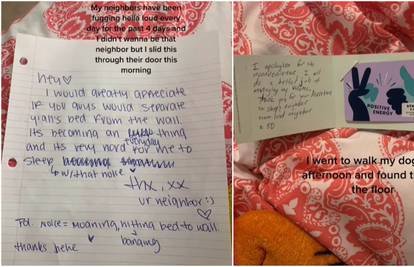 My neighbors have been
fugging hella loud every
day for the past 4 days and
I didn't wanna be that
neighbor but I slid this
through their door this
morning
hey♡
I would greatly appreciate
if you guys would separate
y'all's bed from the wall.
Its becoming an everyday thing
and its very hard for me to
sleep
w/that noise
thx, xx
ur neighbor :)
Pd. noise = moaning, hitting bed to wall
banging
thanks hehe
I apologize for the
I will
do a better job of
managing my
for your
neighbor
POSITIVE
ENERGY
I went to walk my dog
afternoon and found t
the floor